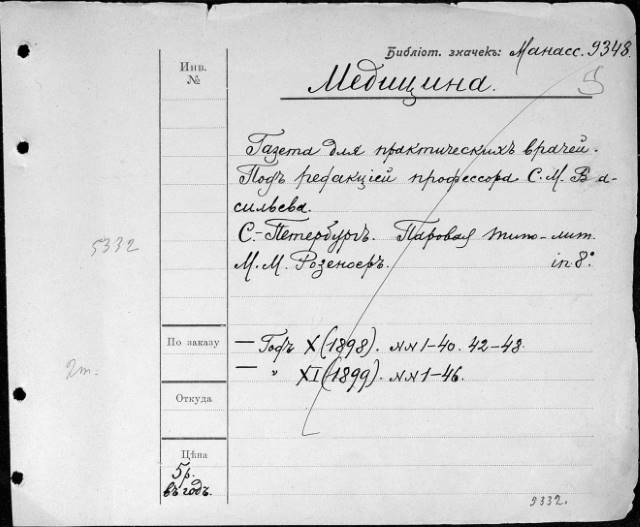 Библіот. значекъ: Манасс. 9348.
Инв.
№
Медицина.
5
Газета для практическихъ врачей.
Подъ редакціей профессора С. М. Ва-
сильева.
С.-Петербургъ. Паровая типо-лит.
5332
М. М. Розеноеръ. in 8°.
По заказу
— Годъ X (1898). №№ 1-40. 42-48.
2 т.
— " XI (1899). №№ 1-46.
Откуда
Цѣна
5 р.
въ годъ.
5332.